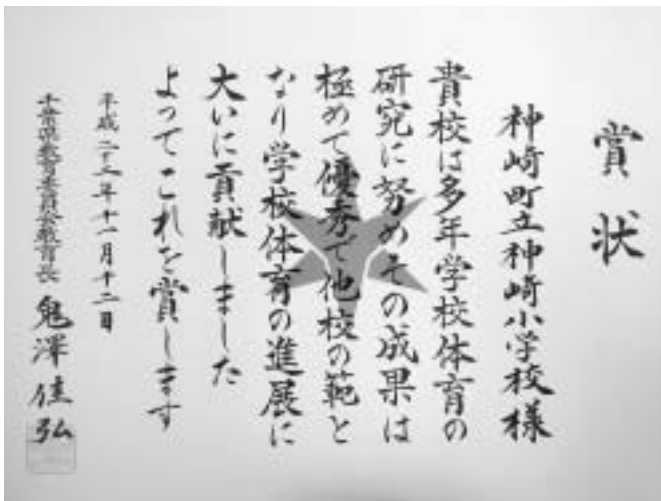 賞状
神崎町立神崎小学校様
貴校は多年学校体育の
研究に努めその成果は
極めて優秀で他校の範と
なり学校体育の進展に
大いに貢献しました
よってこれを賞します
平成二十三年十一月十二日
千葉県教育委員会教育長 鬼澤佳弘